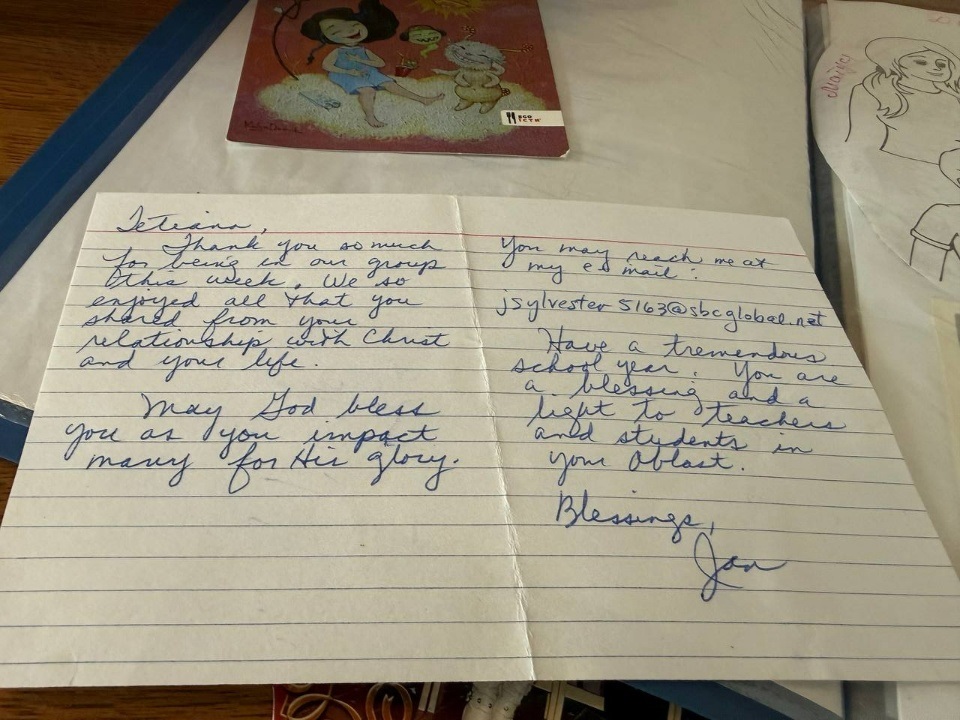 Tetiana,
Thank you so much
for being in our group
this week. We so
enjoyed all that you
shared from your
relationship with Christ
and your life.
May God bless
you as you impact
many for His glory.
You may reach me at
my e-mail:
jsylvester5163@sbcglobal.net
Have a tremendous
school year. You are
a blessing and a
light to teachers
and students in
your Oblast.
Blessings,
Jan